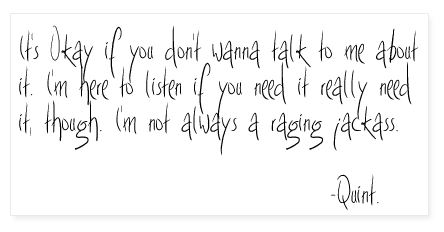 It's Okay if you don't wanna talk to me about
it. I'm here to listen if you need it really need
it, though. I'm not always a raging jackass.
-Quint.